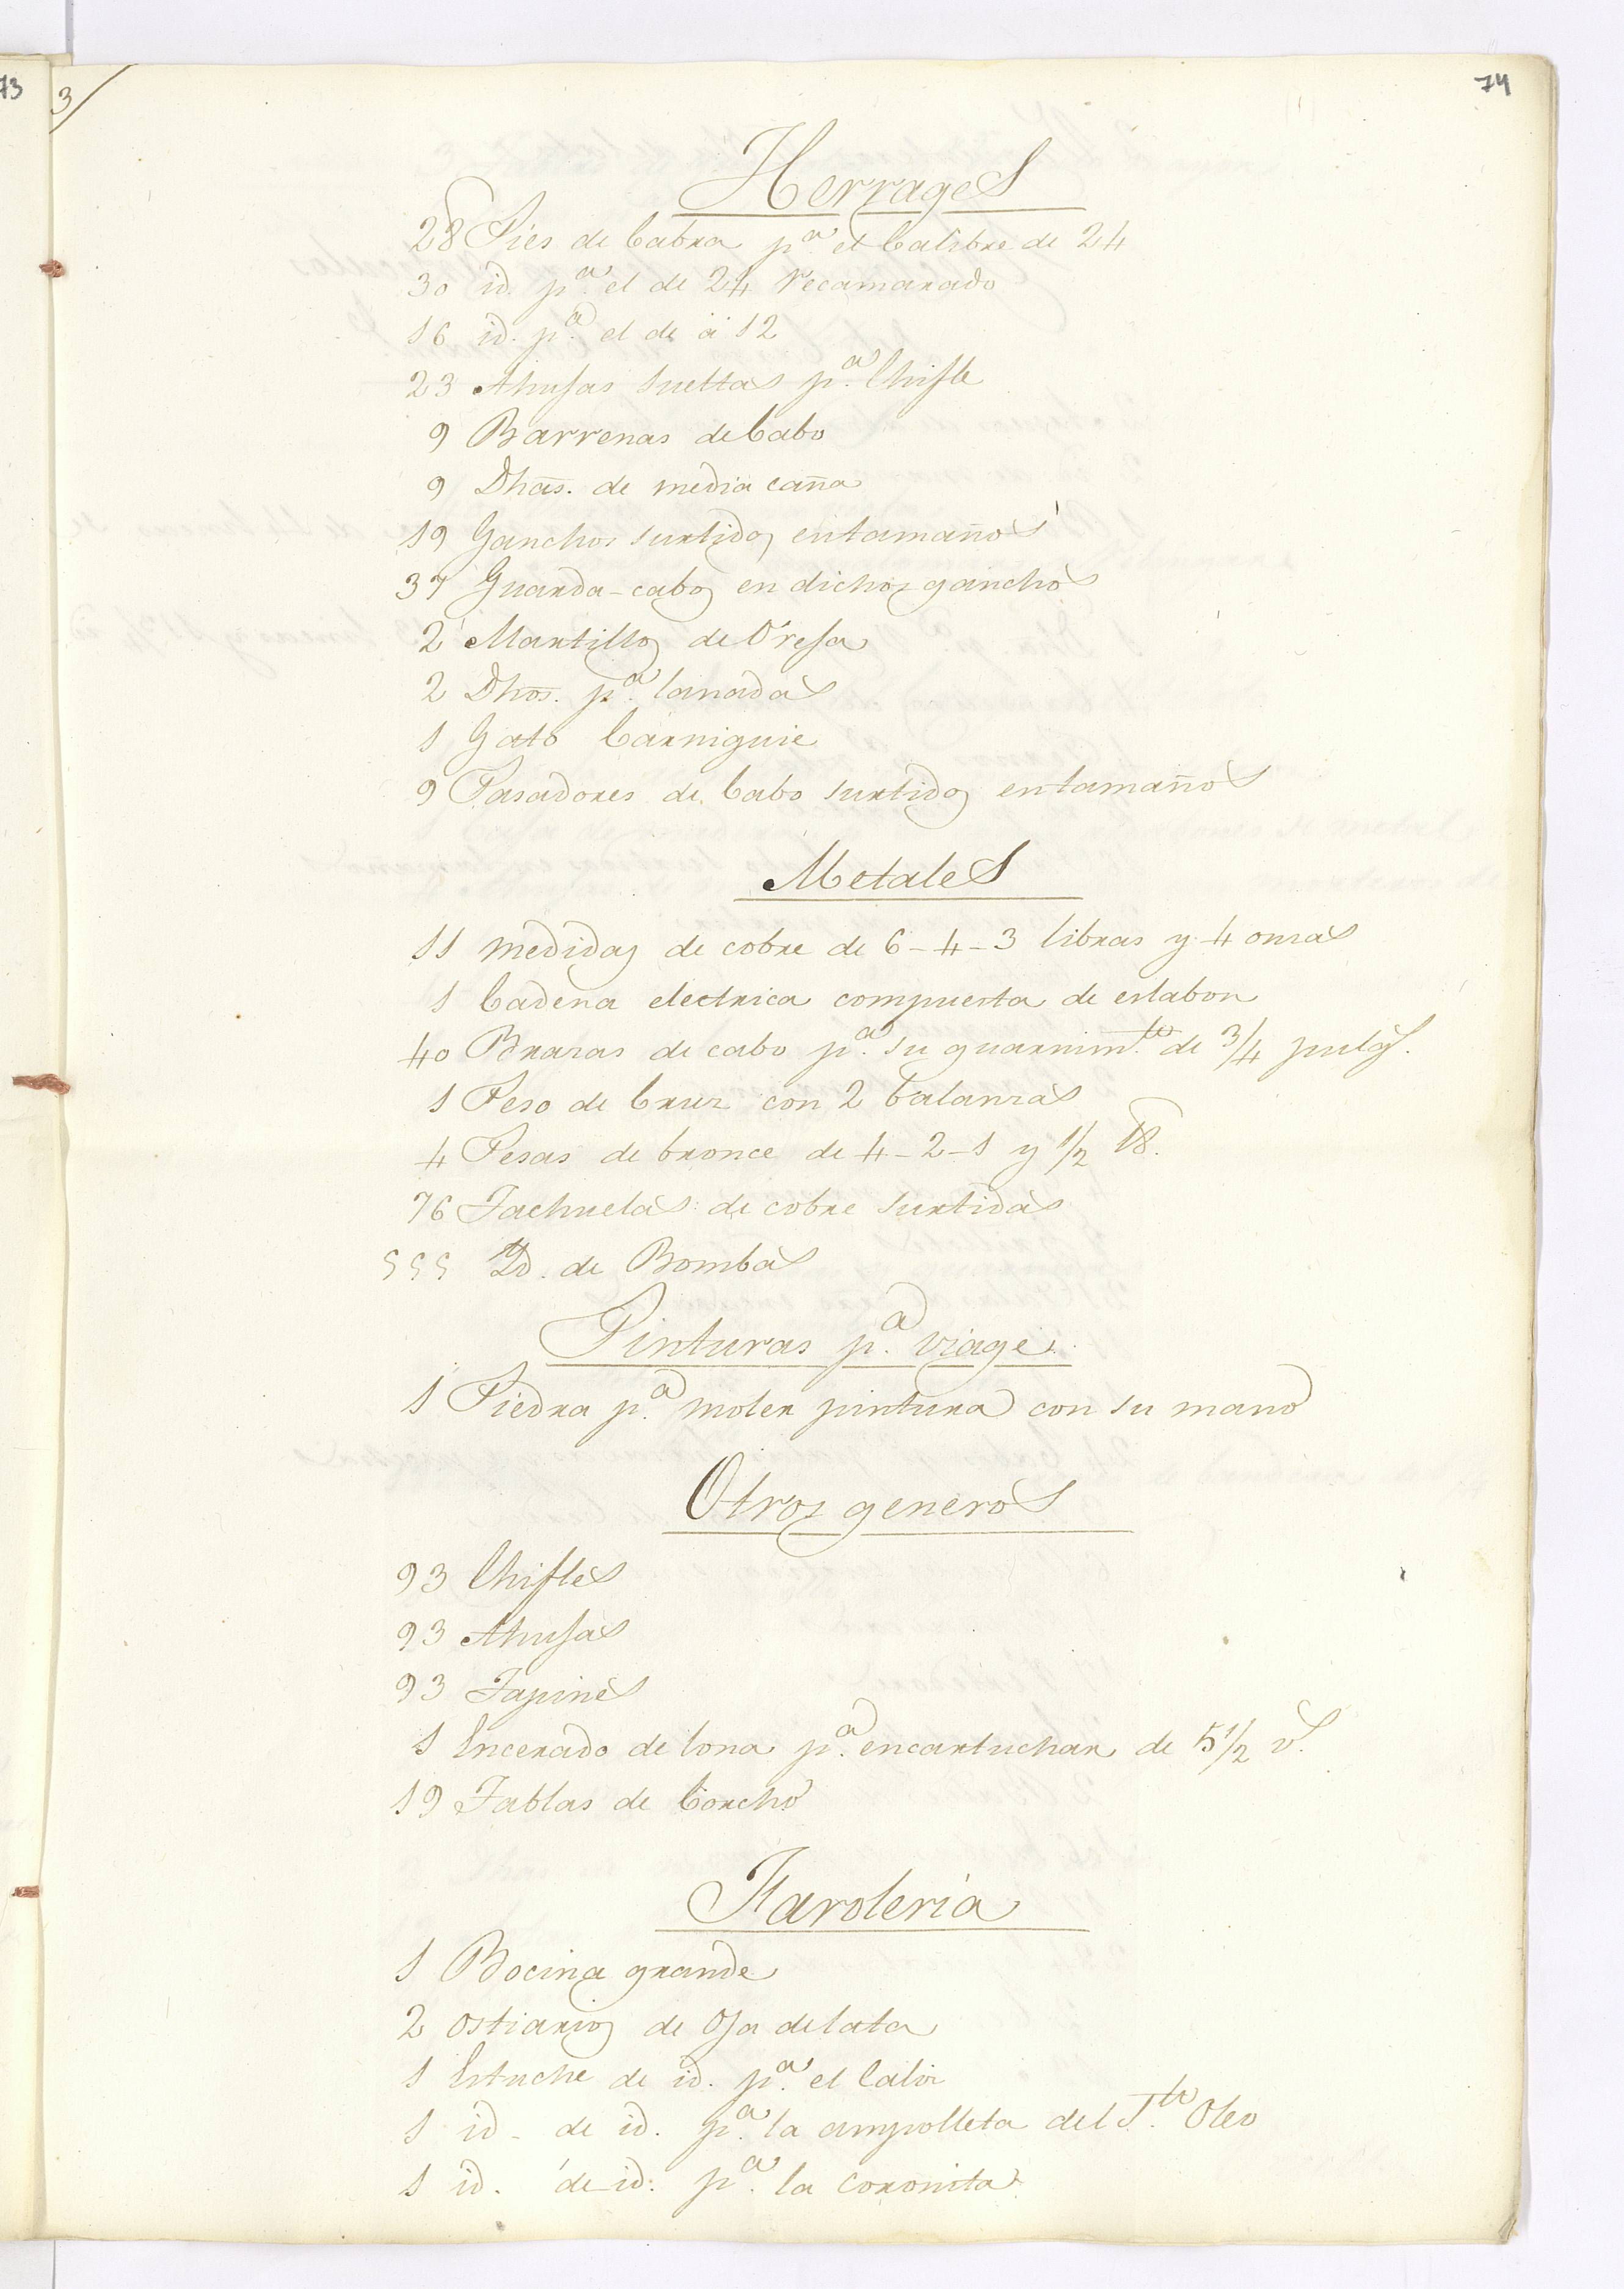 73
3/
74
Herrages
28 Pies de Cabra p.ª el Calibre de 24
30 id. p.ª el de 24 recamarado
16 id. p.ª el de á 12
23 Ahujas sueltas p.ª Chifle
9 Barrenas de Cabo
9 Dhas. de media caña
19 Ganchos surtidos en tamaños
37 Guarda-cabos en dichos ganchos
2 Martillos de Oreja
2 Dhos. p.ª lanadas
1 Gato Carniguie
9 Pasadores de Cabo surtidos en tamaños
Metales
11 medidas de cobre de 6-4-3 libras y 4 onzas
1 Cadena electrica compuesta de eslabon
40 Brazas de cabo p.ª su guarnim.to de 3/4 pulg.s
1 Peso de Cruz con 2 balanzas
4 Pesas de bronce de 4-2-1 y 1/2 lb.
76 Tachuelas de cobre surtidas
555 Id. de Bombas
Pinturas p.ª viage
1 Piedra p.ª moler pintura con su mano
Otros generos
93 Chifles
93 Ahujas
93 Tapines
1 Encerado de lona p.ª encartuchar de 5 1/2 v.s
19 Tablas de Corcho
Faroleria
1 Bocina grande
2 Ostiarios de Oja de lata
1 Estuche de id. p.ª el Caliz
1 id. de id. p.ª la ampolleta del S.to Oleo
1 id. de id. p.ª la coronita